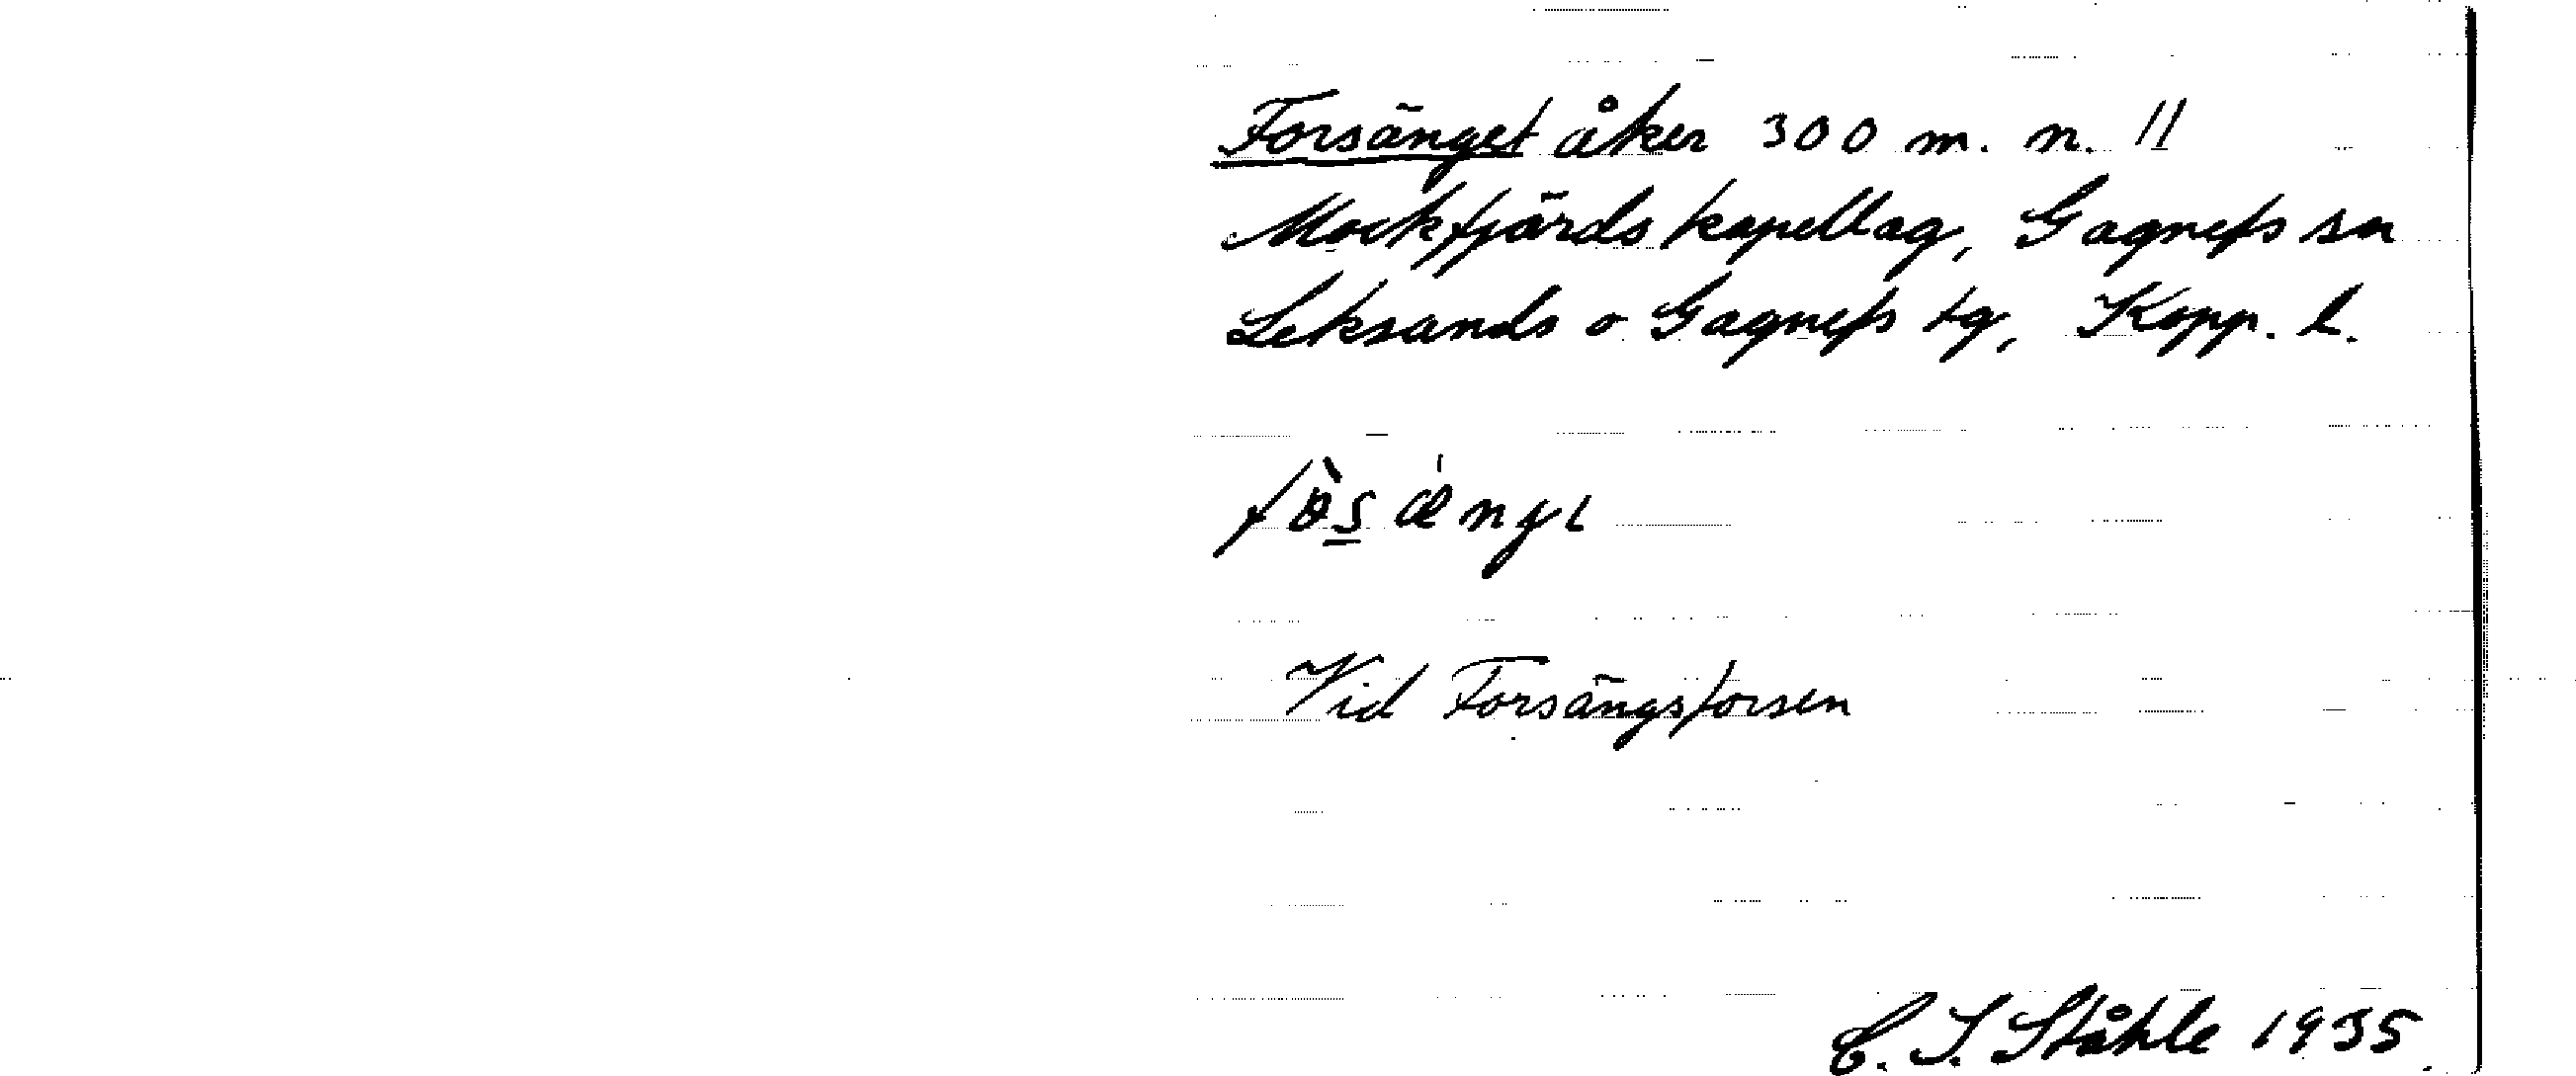 Forsänget åker 300 m. n. 11
Mockfjärds kapellag, Gagnefs sn
Leksands o Gagnefs tg, Kopp. l.
Vid Forsängsforsen
C. I. Ståhle 1935